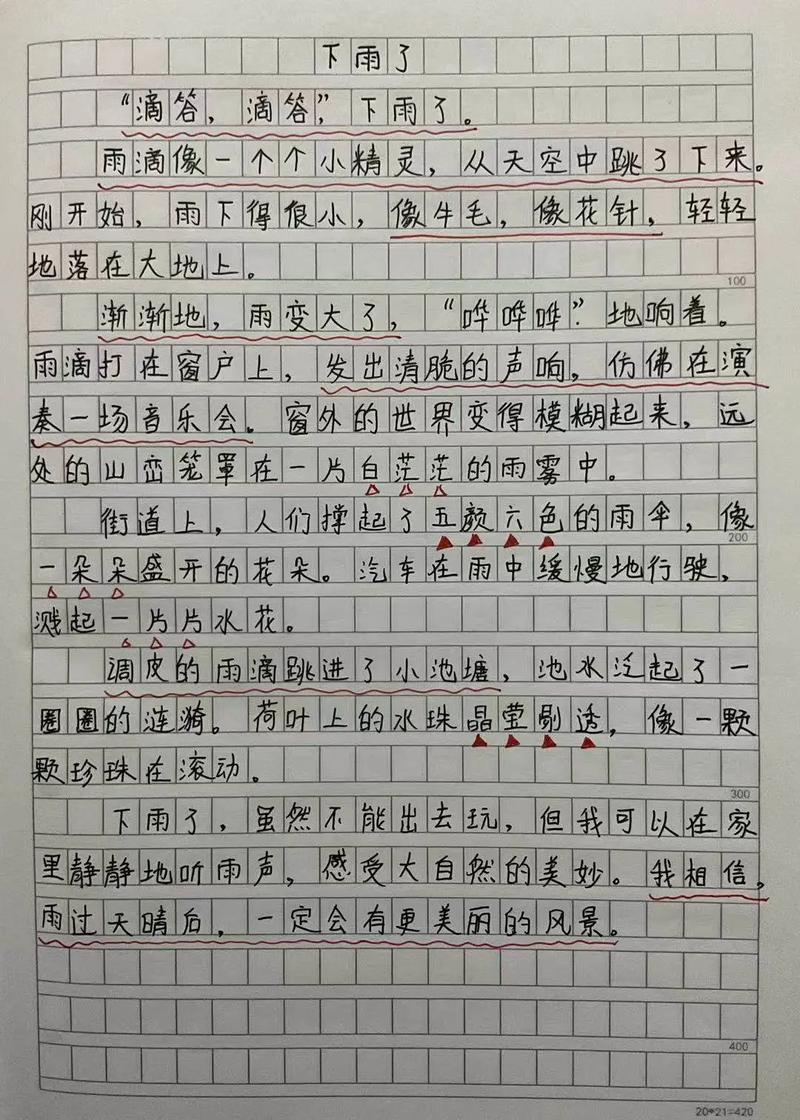 下雨了
“滴答，滴答”，下雨了。
雨滴像一个个小精灵，从天空中跳了下来。
刚开始，雨下得很小，像牛毛，像花针，轻轻
地落在大地上。
100
渐渐地，雨变大了，“哗哗哗”地响着。
雨滴打在窗户上，发出清脆的声响，仿佛在演
奏一场音乐会。窗外的世界变得模糊起来，远
处的山峦笼罩在一片白茫茫的雨雾中。
街道上，人们撑起了五颜六色的雨伞，像
200
一朵朵盛开的花朵。汽车在雨中缓慢地行驶，
溅起一片片水花。
调皮的雨滴跳进了小池塘，池水泛起了一
圈圈的涟漪。荷叶上的水珠晶莹剔透，像一颗
颗珍珠在滚动。
300
下雨了，虽然不能出去玩，但我可以在家
里静静地听雨声，感受大自然的美妙。我相信，
雨过天晴后，一定会有更美丽的风景。
400
20*21=420